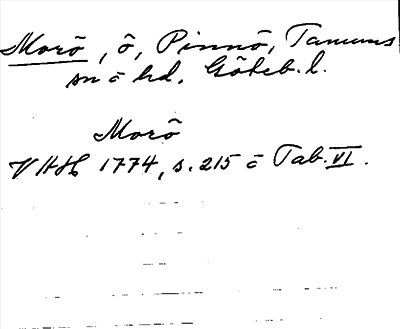 Morö, ö, Pinnö, Tanums
sn o hd, Göteb. l.
Morö
VHH 1774, s. 215 o Tab. VI.